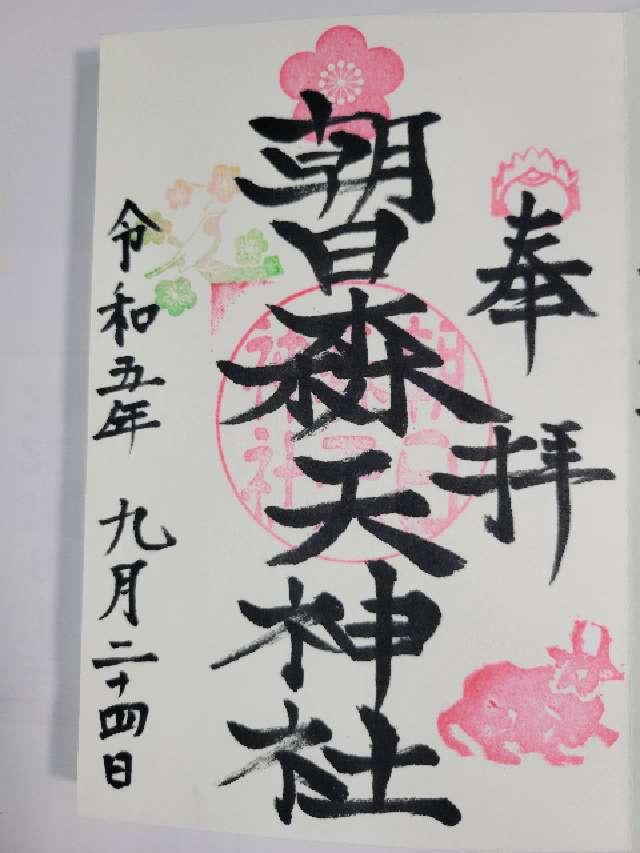 奉拝
朝日森天神社
令和五年 九月二十四日